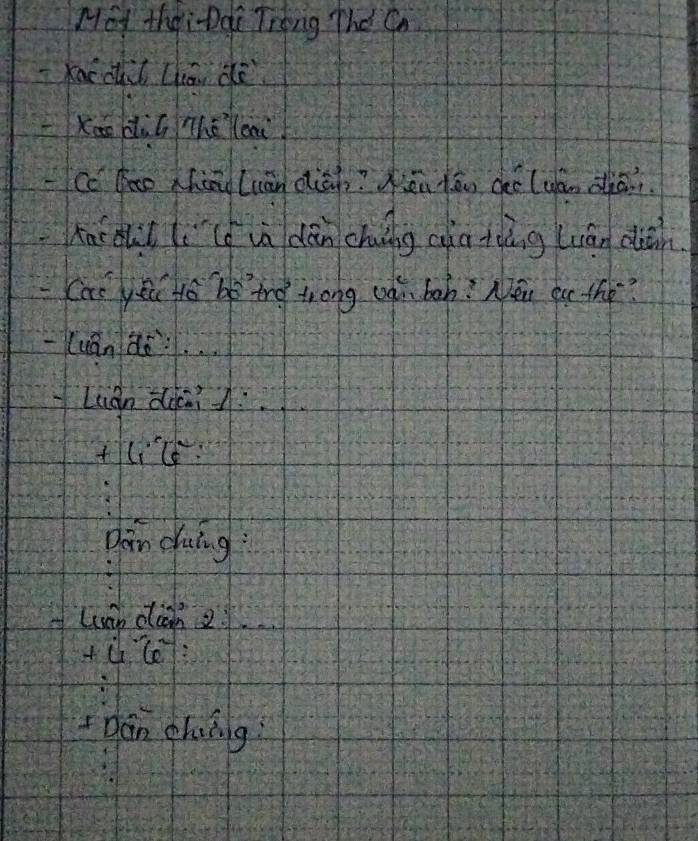 Một thời-Đại Trong Thơ Ca
- Xác định Luận đề.
- Xác định Thể loại.
- Có Bao Nhiêu Luận điểm? Nêu tên các Luận điểm.
- Xác định lí lẽ và dẫn chứng của từng luận điểm.
- Các yếu tố bổ trợ trong văn bản? Nêu cụ thể?
- Luận đề:...
- Luận điểm 1:....
+ Lí lẽ:
⋮
Dẫn chứng:
⋮
- Luận điểm 2:....
+ Lí lẽ:
⋮
+ Dẫn chứng:
⋮